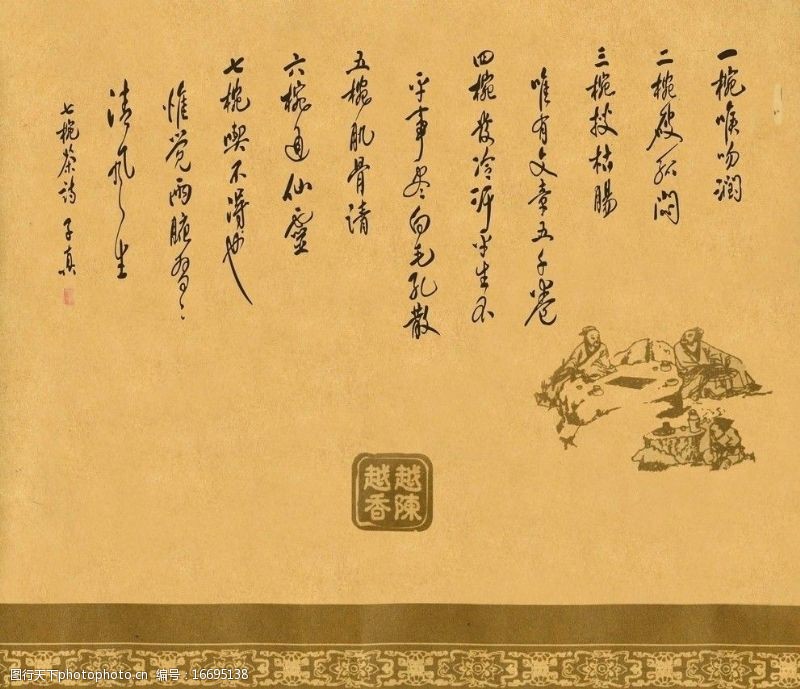 一椀喉吻潤
二椀破孤悶
三椀搜枯腸
唯有文章五千卷
四椀發冷汗平生不
平事尽向毛孔散
五椀肌骨清
六椀通仙靈
七椀喫不得也
惟覺兩腋習々
清風生
七椀茶詩 子真
越陳
越香
图行天下photophoto.cn 编号：16695138